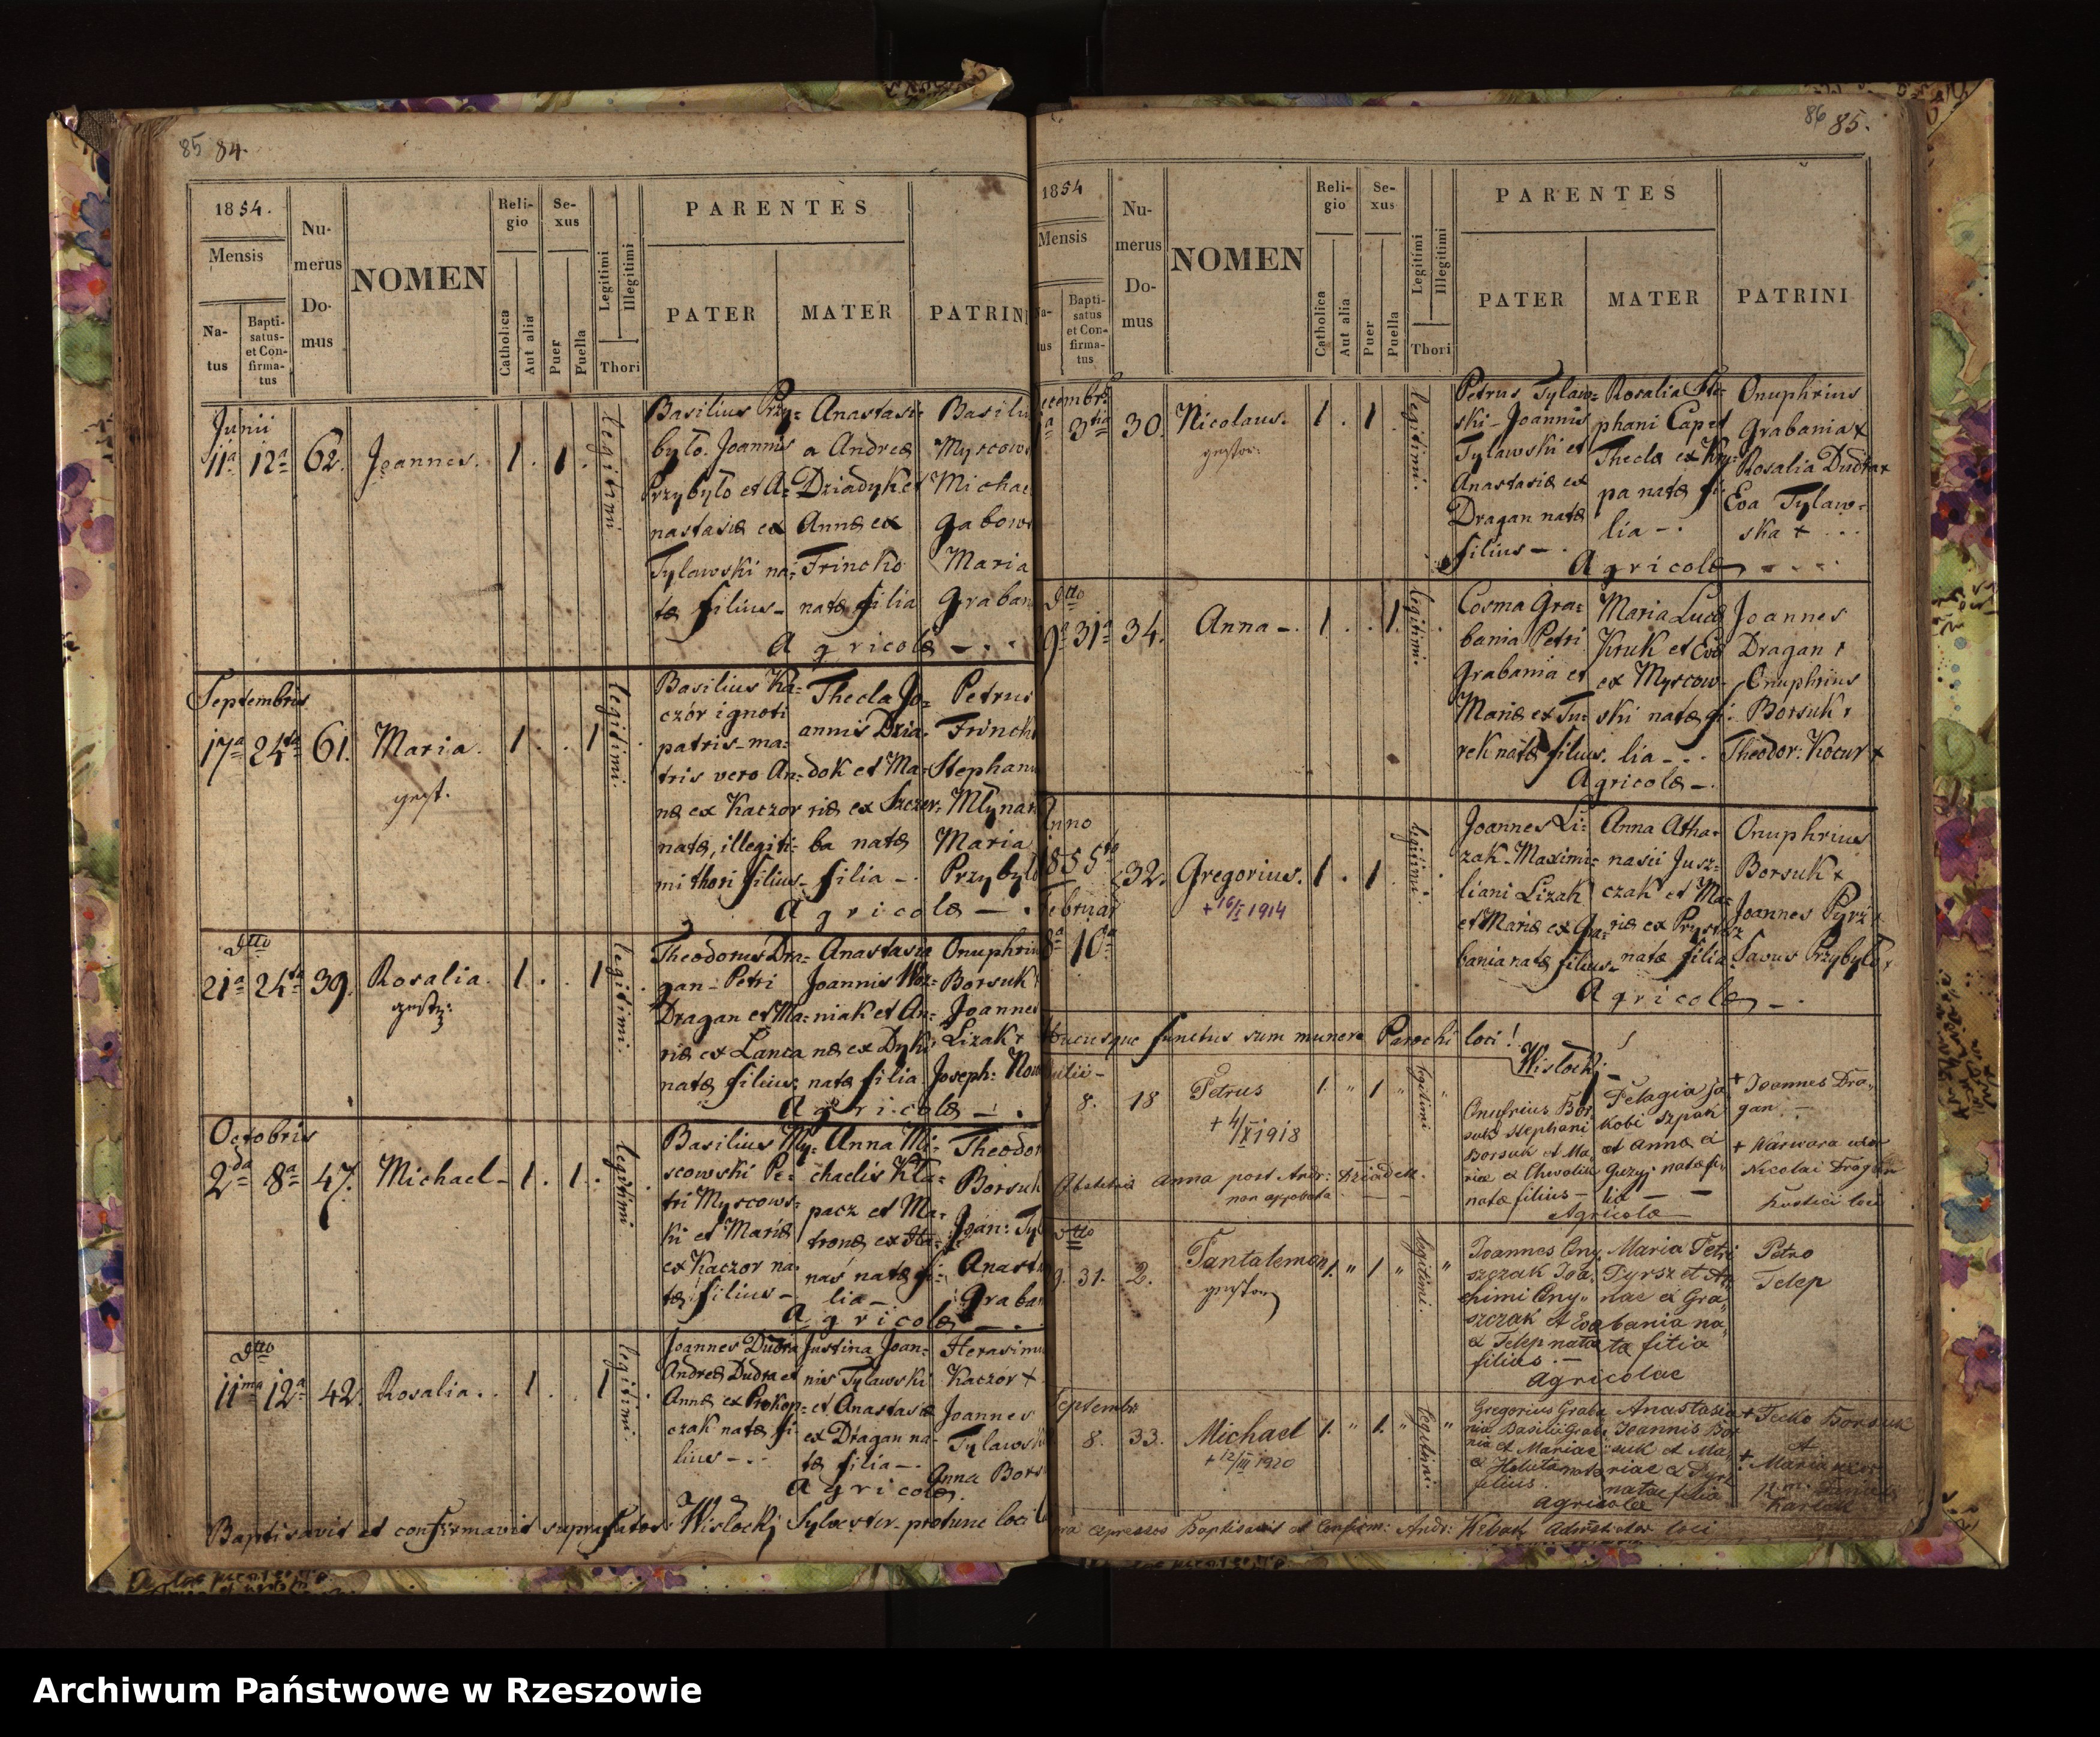 85 84.
1854.
Mensis
Na-
tus
Bapti-
satus
et Con-
firma-
tus
Nu-
merus
Do-
mus
NOMEN
Reli-
gio
Catholica
Aut alia
Se-
xus
Puer
Puella
Legitimi
Illegitimi
Thori
PARENTES
PATER
MATER
PATRIN
Junii
11a 12a 62. Joannes. 1 . 1 .
legitimi
Basilius Przy=
było. Joannis
Przybyło et A=
nastasiæ ex
Tylawski na=
tæ filius-
Anastasi=
a Andreæ
Dziadyk et
Annæ ex
Frincko
natæ filia
Basiliu
Myscow
Michae
gabow
Maria
Graban
Agricolæ -.
Septembris
17a 24ta 61. Maria. 1 . . 1
legitimi.
Basilius Ka=
czór ignoti
patris - ma=
tris vero An=
næ ex Kaczor
natæ, illegiti=
mi thori filius-
Thecla Jo=
annis Dzia=
dok et Ma=
riæ ex Szczer=
ba natæ
filia -.
Petrus
Frinck
Stephanu
Młynar
Maria
Przybył
Agricolæ -.
Dtto
21a 24ta 39. Rosalia. 1 . . 1
legitimi.
Theodorus Dra=
gan - Petri
Dragan et Ma=
riæ ex Lanca
natæ filius;
Anastasia
Joannis Woz=
niak et An=
næ ex Dyk
natæ filia
Onuphriu
Borsuk
Joannes
Lizak +
Joseph: Now
Agricolæ -.
Octobris
2da 8a 47. Michael- 1 . 1 .
legitimi
Basilius My=
scowski Pe=
tri Myscows=
ki et Mariæ
ex Kaczor na=
tæ filius-
Anna Mi=
chaelis Kła=
pacz et Ma=
tronæ ex
natæ fi=
lia -
Theodor
Borsuk
Joan: Tyl
Anast
Graban
Agricolæ
Dtto
11ma 12a 42. Rosalia. . 1 . . 1
legitimi.
Joannes Dudra
Andreæ Dudra et
Annæ ex Prokop=
czak natæ fi=
lius -.
Justina Joan=
nis Tylawski
et Anastasiæ
ex Dragan na=
tæ filia -.
Herasimu
Kaczór +
Joannes
Tylawsk
Anna Bors
Agricolæ.
Baptisavit et confirmavit suprafatos: Wisłockj Sylvester protunc loci
86 85.
1854
Mensis
us
Bapti-
satus
et Con-
firma-
tus
Nu-
merus
Do-
mus
NOMEN
Reli-
gio
Catholica
Aut alia
Se-
xus
Puer
Puella
Legitimi
Illegitimi
Thori
PARENTES
PATER
MATER
PATRINI
ecembr:
3tia 30. Nicolaus. 1 . 1 .
legitimi.
Petrus Tylaw=
ski - Joannis
Tylawski et
Anastasiæ ex
Dragan natæ
filius -.
Rosalia Ste=
phani Cap et
Theclæ ex Kry=
pa natæ fi=
lia -.
Onuphrius
Grabania x
Rosalia Dudra x
Eva Tylaw=
ska x
Agricolæ
Dtto
31a 34. Anna -. 1 . . 1.
legitimi.
Cosma Gra=
bania Petri
Grabania et
Mariæ ex Tu=
rek natæ filius.
Maria Lucæ
Kruk et Evæ
ex Myscow=
ski natæ fi=
lia - . .
Joannes
Dragan +
Onuphrius
Borsuk +
Theodor: Kocur x
Agricolæ -.
Anno
1855to
Februar
8a 10a 32. Gregorius. 1 . 1
+ 16/I 1914
legitimi
Joannes Li=
zak - Maximi=
liani Lizak
et Mariæ ex Gra=
bania natæ filius.
Anna Atha=
nasii Jusz=
czak et Ma=
riæ ex Prystasz
natæ filia
Onuphrius
Borsuk x
Joannes Pyrz
Savus Przybyło x
Agricolæ -.
Hucusque functus sum munere Parochi loci!
Wisłockj
Julii -
8. 18 Petrus 1. " 1 "
+ 4/X 1918
legitimi
Onufrius Bor
suk Stephani
Borsuk et Ma,
riæ ex Chwalik
natæ filius -
Pelagia Ja
kobi Szpak
et Anna ex
Guzy natæ fi,
lia - -
+ Joannes Dra,,
gan. -
+ Warwara uxor
Nicolai Dragan
Rustici loci
Obstetrix Anna post Andr: Dziadek.
non approbata
Agricolæ
Dtto
31. 2. Pantalemon 1. " 1 "
legitimi.
Joannes Ony,
szczak Joa,
chimi Ony,,
szczak et Eva
ex Telep natæ
filius. -
Maria Petri
Pyrsz et An
nae ex Gra,
bania na,
ta filia
Petro
Telep
Agricolae
Septembr
8. 33. Michael 1. " 1. "
+ 12/III 1920
legitimi.
Gregorius Graba
nia Basilii Grab
nia et Mariae
ex Haluta natæ
filius.
Anastasia
Joannis Bor
suk et Ma,
riae ex Pyrz
natae filia
+ Fecko Borsuk
et
+ Maria uxor
Agricolæ
expressos Baptisavit et Confirm: Andr: Administrator loci
Archiwum Państwowe w Rzeszowie